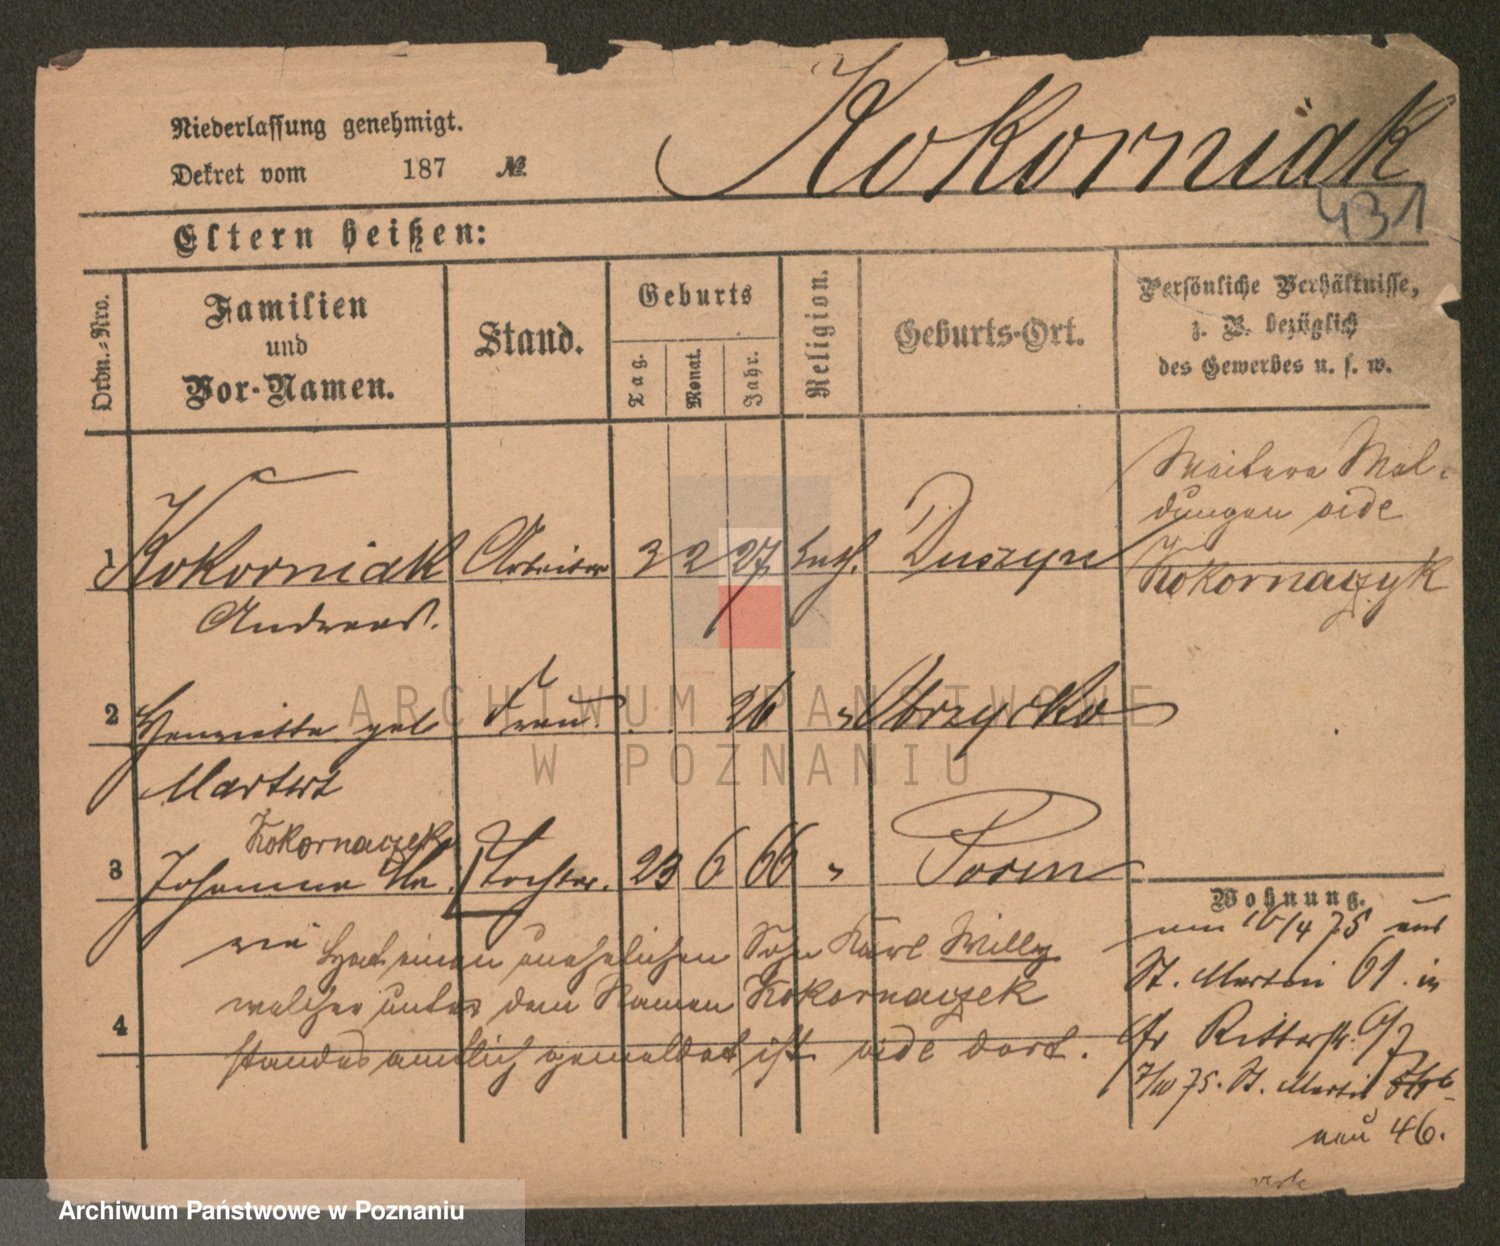 Niederlassung genehmigt.
Dekret vom 187 №
Kokorniak
431
Eltern heißen:
Ordn.-Nro.
Familien
und
Vor-Namen.
Stand.
Geburts
Tag.
Monat.
Jahr.
Religion.
Geburts-Ort.
Persönliche Verhältnisse,
z. B. bezüglich
des Gewerbes u. s. w.
1 Kokorniak Arbeiter 3 2 27 kath. Duszyn
Andreas.
Weitere Mel-
dungen vide
Kokornaczyk
2 Henriette geb Frau 26 " Obrzycko
Martert
Kokornaczek
3 Johanna Tochter. 23 6 66 " Posen
Hat einen unehelichen Sohn Karl Willy
welcher unter dem Namen Kokornaczek
4
standesamtlich gemeldet ist vide dort.
Wohnung.
am 16/4 75 aus
St. Martin 61. in
Gr Ritterstr. 9
75. St. Martin
neu 46.
ARCHIWUM PAŃSTWOWE
W POZNANIU
Archiwum Państwowe w Poznaniu